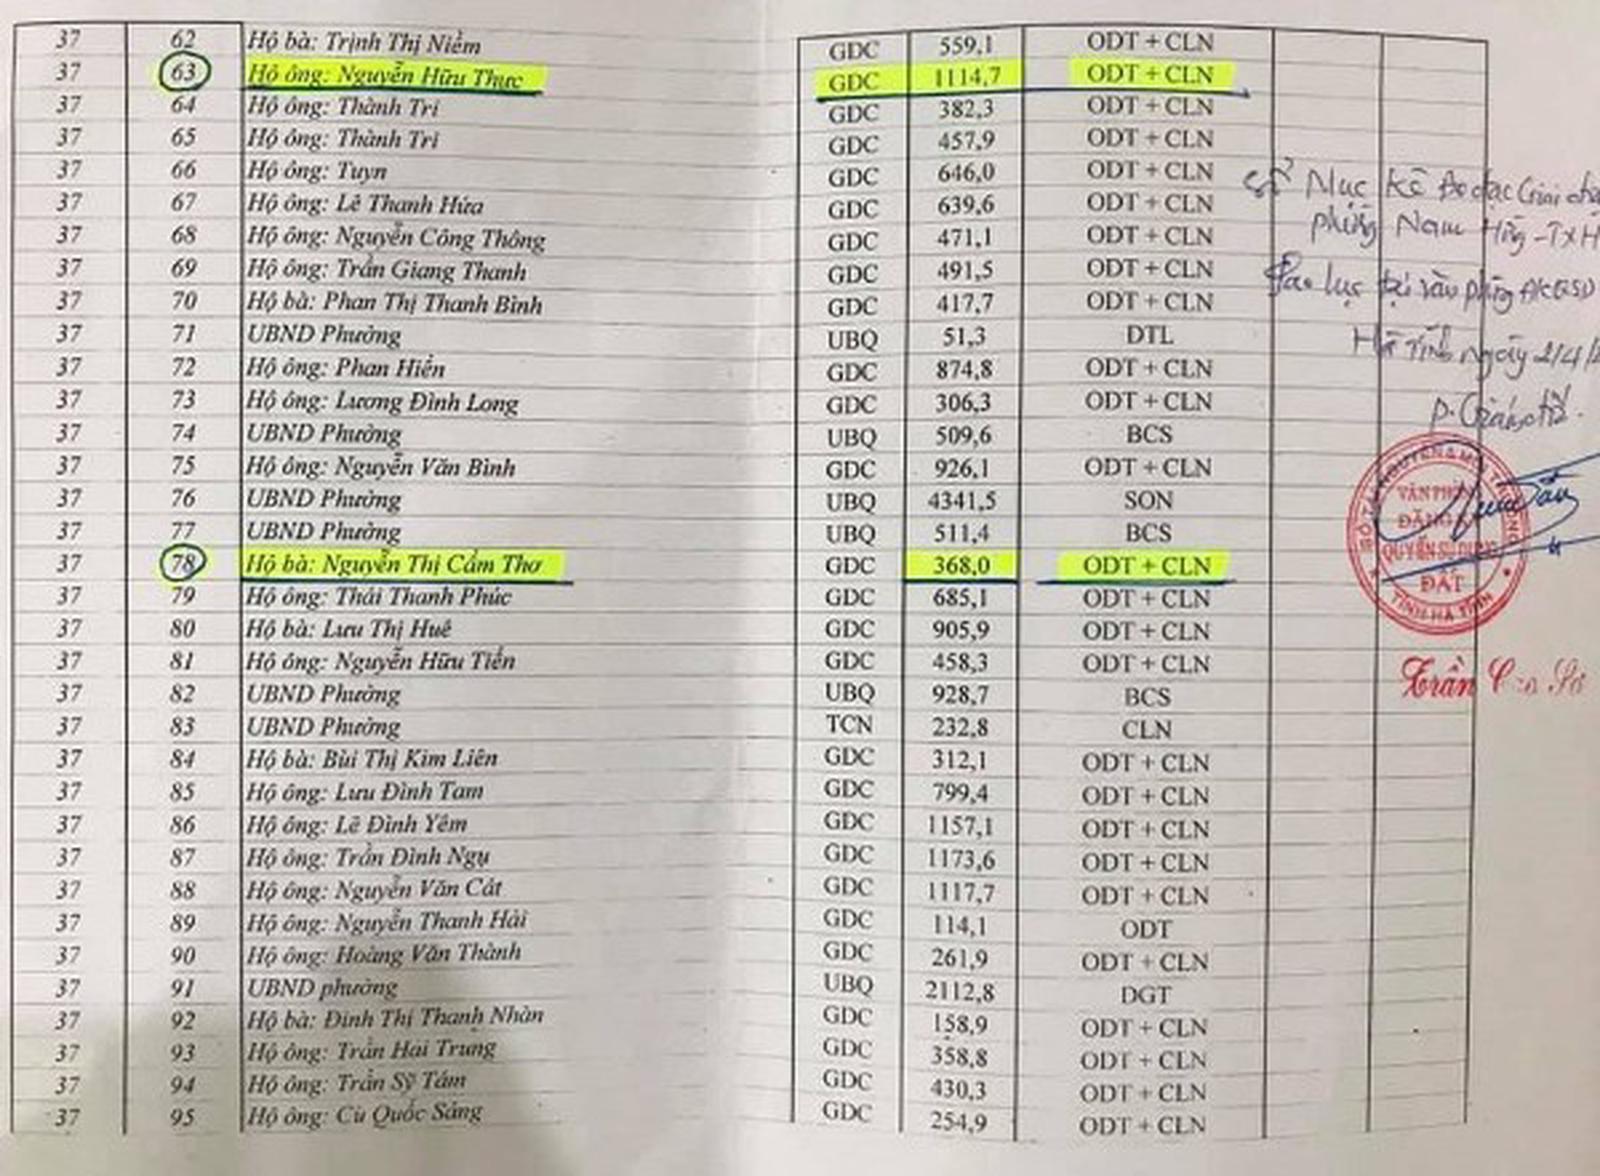 37 62 Hộ bà: Trịnh Thị Niềm GDC 559,1 ODT + CLN
37 63 Hộ ông: Nguyễn Hữu Thực GDC 1114,7 ODT + CLN
37 64 Hộ ông: Thành Trí GDC 382,3 ODT + CLN
37 65 Hộ ông: Thành Trí GDC 457,9 ODT + CLN
37 66 Hộ ông: Tuyn GDC 646,0 ODT + CLN
37 67 Hộ ông: Lê Thanh Hứa GDC 639,6 ODT + CLN
37 68 Hộ ông: Nguyễn Công Thông GDC 471,1 ODT + CLN
37 69 Hộ ông: Trần Giang Thanh GDC 491,5 ODT + CLN
37 70 Hộ bà: Phan Thị Thanh Bình GDC 417,7 ODT + CLN
37 71 UBND Phường UBQ 51,3 DTL
37 72 Hộ ông: Phan Hiền GDC 874,8 ODT + CLN
37 73 Hộ ông: Lương Đình Long GDC 306,3 ODT + CLN
37 74 UBND Phường UBQ 509,6 BCS
37 75 Hộ ông: Nguyễn Văn Bình GDC 926,1 ODT + CLN
37 76 UBND Phường UBQ 4341,5 SON
37 77 UBND Phường UBQ 511,4 BCS
37 78 Hộ bà: Nguyễn Thị Cẩm Thơ GDC 368,0 ODT + CLN
37 79 Hộ ông: Thái Thanh Phúc GDC 685,1 ODT + CLN
37 80 Hộ bà: Lưu Thị Huê GDC 905,9 ODT + CLN
37 81 Hộ ông: Nguyễn Hữu Tiến GDC 458,3 ODT + CLN
37 82 UBND Phường UBQ 928,7 BCS
37 83 UBND Phường TCN 232,8 CLN
37 84 Hộ bà: Bùi Thị Kim Liên GDC 312,1 ODT + CLN
37 85 Hộ ông: Lưu Đình Tam GDC 799,4 ODT + CLN
37 86 Hộ ông: Lê Đình Yêm GDC 1157,1 ODT + CLN
37 87 Hộ ông: Trần Đình Ngụ GDC 1173,6 ODT + CLN
37 88 Hộ ông: Nguyễn Văn Cát GDC 1117,7 ODT + CLN
37 89 Hộ ông: Nguyễn Thanh Hải GDC 114,1 ODT
37 90 Hộ ông: Hoàng Văn Thành GDC 261,9 ODT + CLN
37 91 UBND phường UBQ 2112,8 DGT
37 92 Hộ bà: Đinh Thị Thanh Nhàn GDC 158,9 ODT + CLN
37 93 Hộ ông: Trần Hai Trung GDC 358,8 ODT + CLN
37 94 Hộ ông: Trần Sỹ Tám GDC 430,3 ODT + CLN
37 95 Hộ ông: Cù Quốc Sáng GDC 254,9 ODT + CLN
Sổ Mục Kê Đo đạc Giai
phường Nam Hồng - TX H
Sao lục tại văn phòng ĐKQSD
Hà Tĩnh ngày 2/4/
P. Giám đốc
SỞ TÀI NGUYÊN & MÔI TRƯỜNG
VĂN PHÒNG
ĐĂNG KÝ
QUYỀN SỬ DỤNG
ĐẤT
TỈNH HÀ TĨNH
Trần